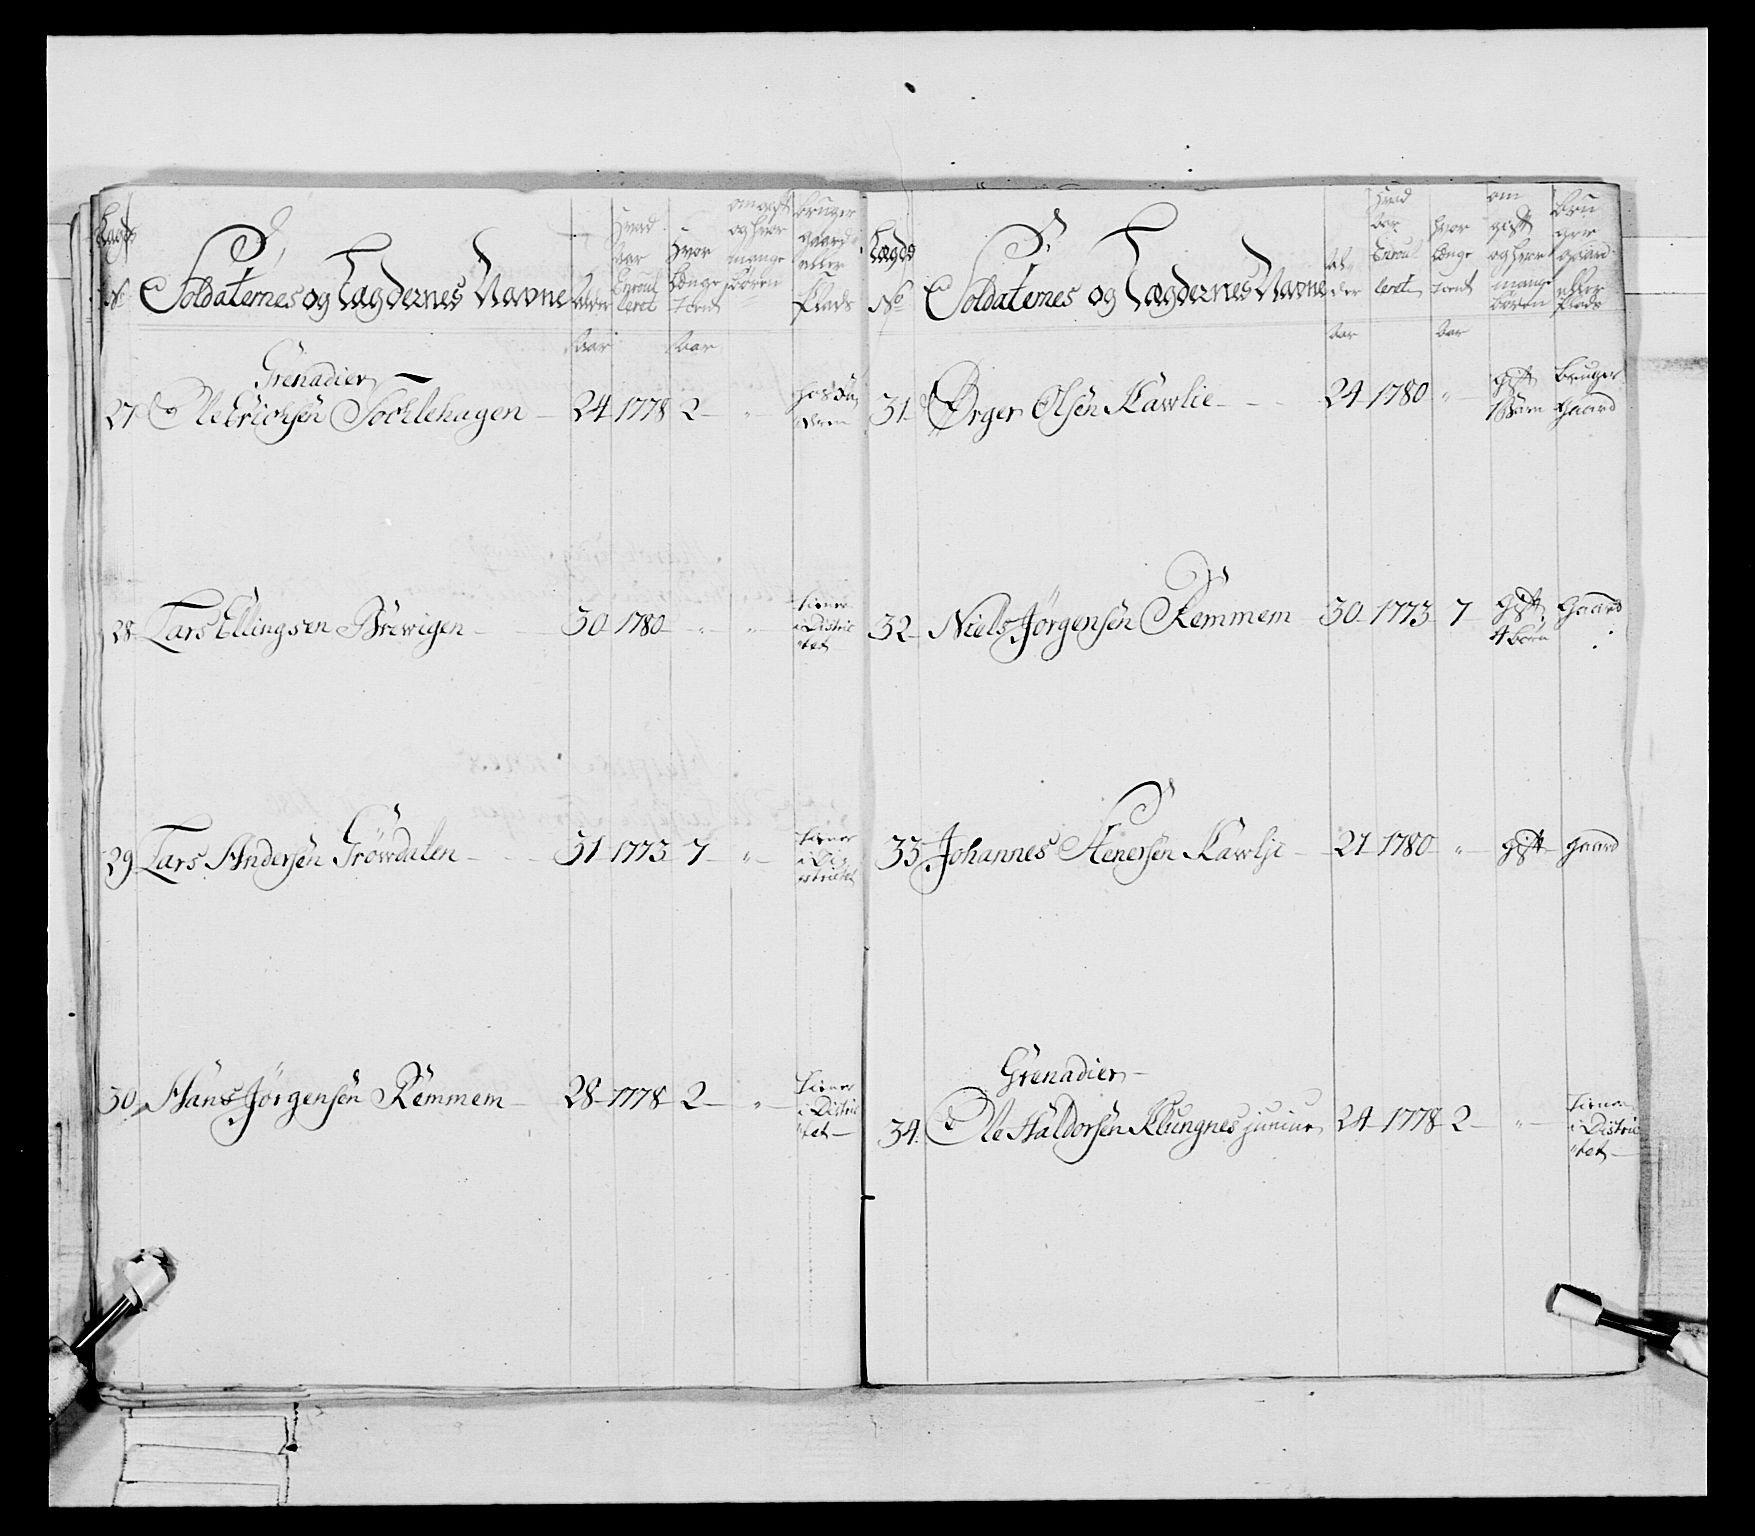 Lægds No
Soldaternes og Lægdernes Navne
Alder
Hvad Aar Enroulleret
Hvor Længe Tient
om gift og hvor mange Børen
bruger gaard eller Plads
Aar
Aar
Grenadier
27 Ole Erichsen Sochlehagen 24 1778 2 „
28 Lars Ellingsen Brewigen 30 1780 „ „ tiener i Districtet
29 Lars Andersen Gröwdalen 31 1773 7 „ tiener i Districtet
30 Hans Jörgensen Remmem 28 1778 2 „ tiener i Districtet
Lægds No
Soldaternes og Lægdernes Navne
Alder
Hvad Aar Enroulleret
hvor Længe tient
om gift og hvor mange børen
bruger gaard eller Plads
Aar
Aar
31. Örger Olsen Kawlie 24 1780 „ gift 1 Barn bruger Gaard
32 Niels Jörgensen Remmem 30 1773 7 gift 4 børn Gaard
33 Johannes Stenersen Kawlje 21 1780 „ gift gaard
Grenadier
34. Ole Haldorsen Klungnes junior 24 1778 2 „ tiener i Districtet